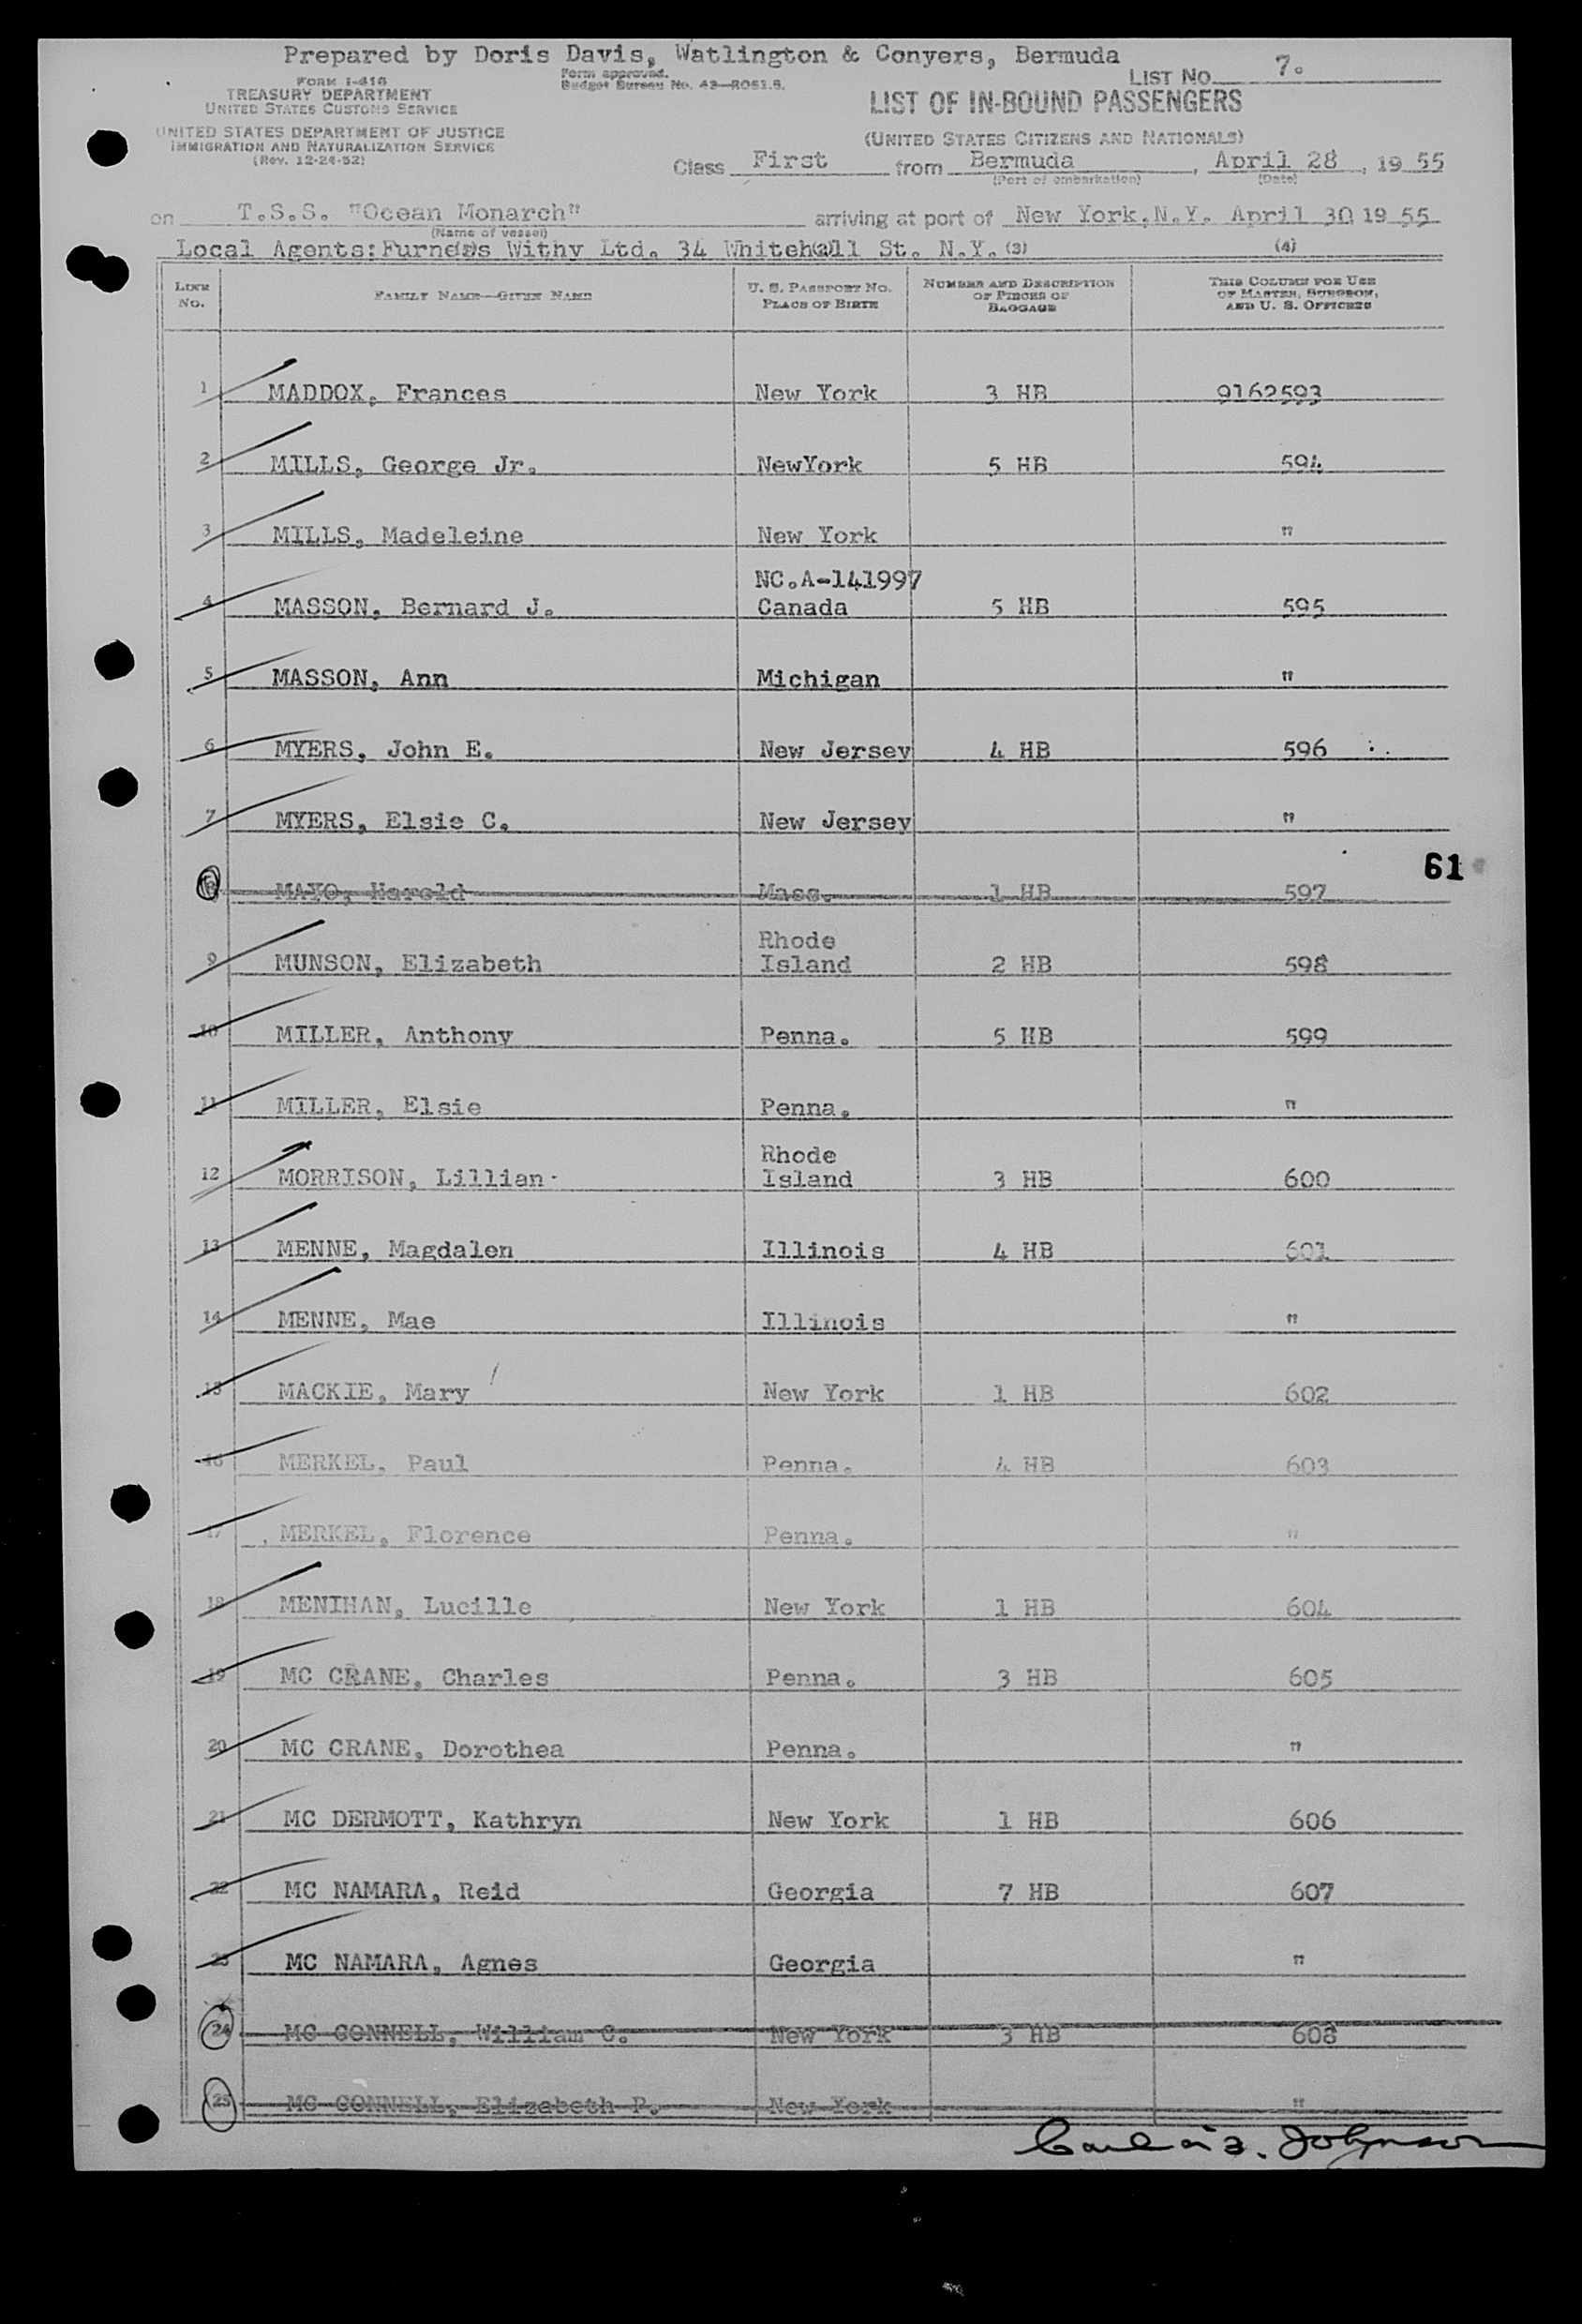 Prepared by Doris Davis, Watlington & Conyers, Bermuda
FORM I-418
TREASURY DEPARTMENT
UNITED STATES CUSTOMS SERVICE
UNITED STATES DEPARTMENT OF JUSTICE
IMMIGRATION AND NATURALIZATION SERVICE
(Rev. 12-24-52)
Form approved.
Budget Bureau No. 43—R051.5.
LIST NO. 7.
LIST OF IN-BOUND PASSENGERS
(UNITED STATES CITIZENS AND NATIONALS)
Class First from Bermuda, April 28, 1955
(Port of embarkation) (Date)
on T.S.S. "Ocean Monarch" arriving at port of New York, N.Y. April 30 1955
(Name of vessel)
Local Agents: Furness Withy Ltd. 34 Whitehall St. N.Y. (3) (4)
LINE NO. FAMILY NAME—GIVEN NAME U. S. PASSPORT NO. PLACE OF BIRTH NUMBER AND DESCRIPTION OF PIECES OF BAGGAGE THIS COLUMN FOR USE OF MASTER, SURGEON, AND U. S. OFFICERS
1 MADDOX, Frances New York 3 HB 9162593
2 MILLS, George Jr. NewYork 5 HB 594
3 MILLS, Madeleine New York "
NC.A-141997
4 MASSON, Bernard J. Canada 5 HB 595
5 MASSON, Ann Michigan "
6 MYERS, John E. New Jersey 4 HB 596
7 MYERS, Elsie C. New Jersey "
61
8 MAYO, Harold Mass. 1 HB 597
Rhode
9 MUNSON, Elizabeth Island 2 HB 598
10 MILLER, Anthony Penna. 5 HB 599
11 MILLER, Elsie Penna. "
Rhode
12 MORRISON, Lillian Island 3 HB 600
13 MENNE, Magdalen Illinois 4 HB 601
14 MENNE, Mae Illinois "
15 MACKIE, Mary New York 1 HB 602
16 MERKEL, Paul Penna. 4 HB 603
17 MERKEL, Florence Penna. "
18 MENIHAN, Lucille New York 1 HB 604
19 MC CRANE, Charles Penna. 3 HB 605
20 MC CRANE, Dorothea Penna. "
21 MC DERMOTT, Kathryn New York 1 HB 606
22 MC NAMARA, Reid Georgia 7 HB 607
23 MC NAMARA, Agnes Georgia "
24 MC CONNELL, William C. New York 3 HB 608
25 MC CONNELL, Elizabeth P. New York "
Johnson